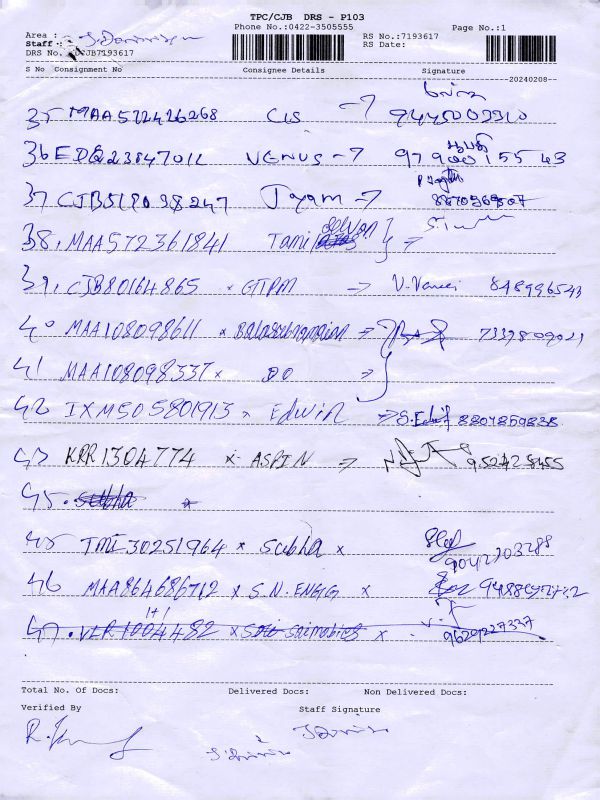 TPC/CJB DRS - P103
Phone No.:0422-3505555 Page No.:1
Area :
Staff :
RS No.:7193617
DRS No. CJB7193617 RS Date:
S No Consignment No Consignee Details Signature
20240208
35 MAA572426268 CIS
36 EDQ23847012 VENUS
37 CJB518038247 Jayam
38, MAA572361841 Tamil Selvan
39, CJB80164865 × GTIPM V. 848996543
40 MAA108098611 × Balasubramanian 7339809021
41 MAA108098337 × DO
42 IXM505801913 × Edwin S.Edwi 8807259838
43 KRR1304774 × ASPIN 952428455
45. Subha ×
45 TMI30251964 × Subha × 9042203288
46 MAA864686712 × S.N. ENGG ×
1+1
47. VLR1004482 × × 9629227337
Total No. Of Docs: Delivered Docs: Non Delivered Docs:
Verified By Staff Signature